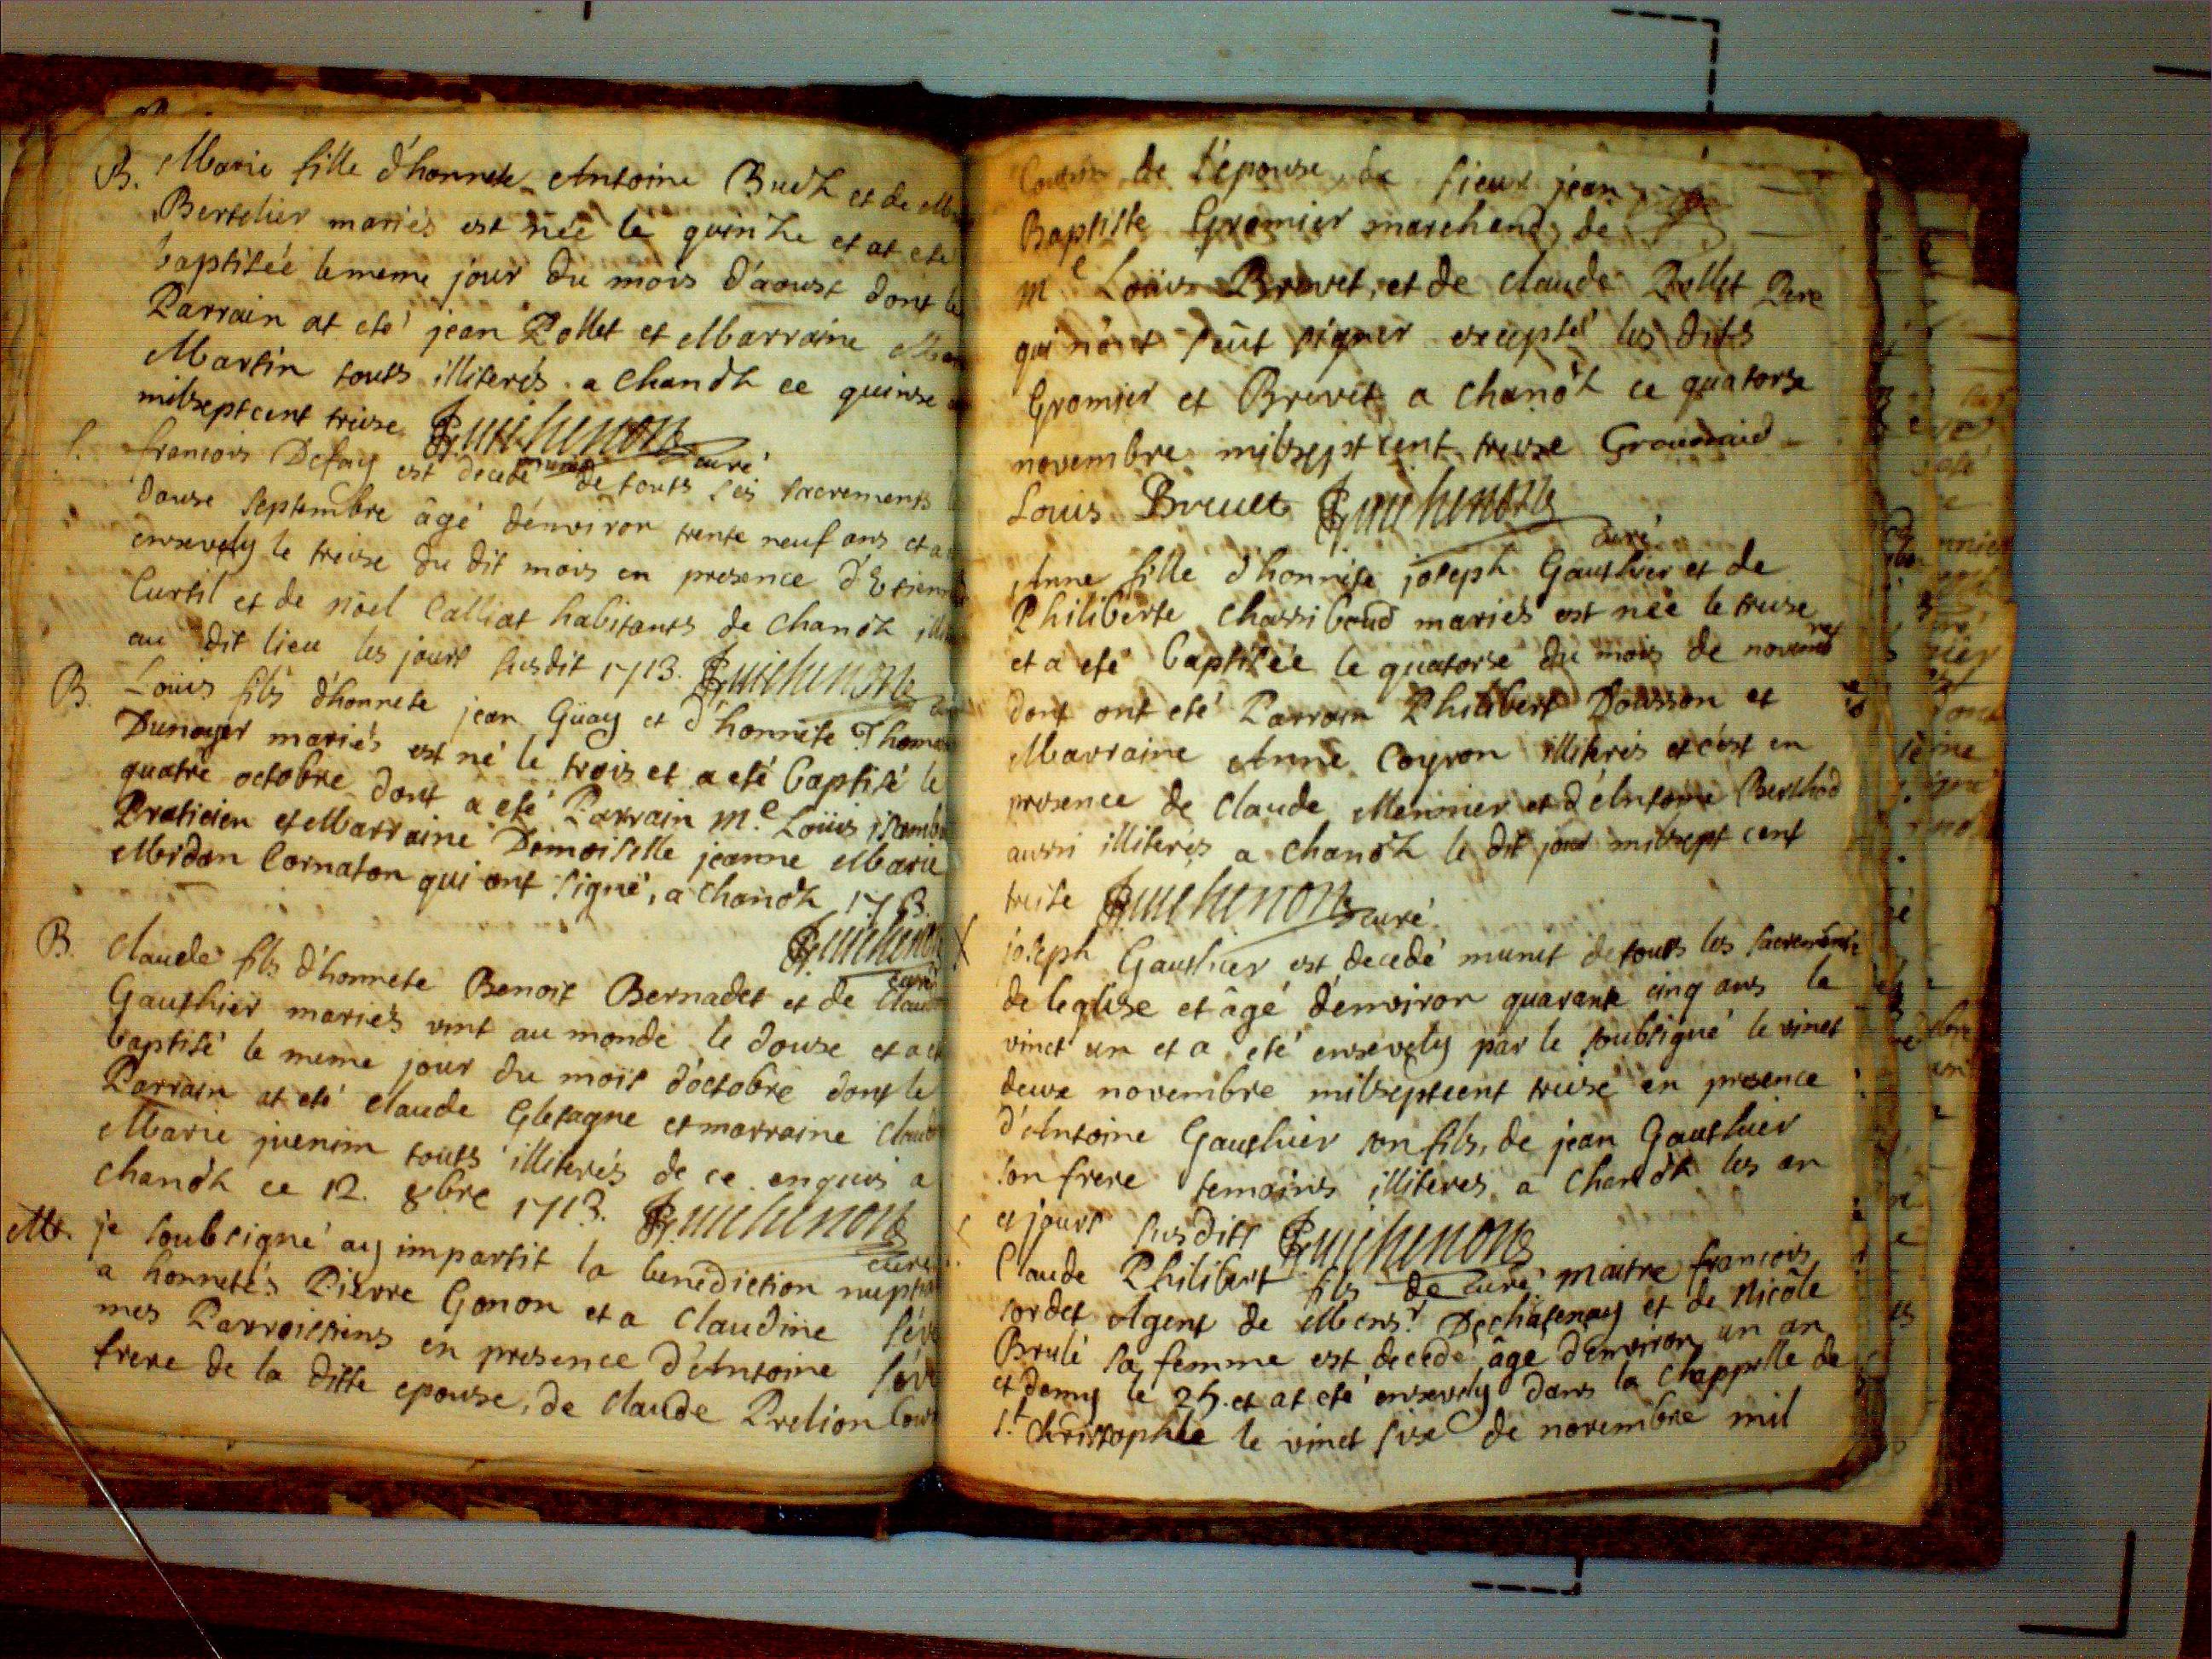 B. Marie fille d'honnete Antoine Budz et de
Bertelier mariés est née le quinze et at eté
baptisée le meme jour du mois d'aoust dont le
Parrain at eté jean Pollet et Marraine
Martin touts illiterés a Chanoz ce quinse
milseptcent treise Guichenon curé
S. francois Defay est decedé muni de touts ses sacrements
douse septembre âgé d'environ trente neuf ans et a
ensevely le treise du dit mois en presence d'Etienne
Curtil et de nöel Calliat habitants de Chanoz
au dit lieu les jours susdit 1713. Guichenon
B. Loüis fils d'honnete jean Guay et d'honnete
Dunoyer mariés est né le trois et a eté baptisé le
quatre octobre dont a eté Parrain me. Loüis
Praticien et Marraine Demoiselle jeanne Marie
Midan Cornaton qui ont signé, a Chanoz 1713.
Guichenon curé
B. Claude fils d'honnete Benoit Bernadet et de
Gauthier mariés vint au monde le douse et a
baptisé le meme jour du mois d'octobre dont le
Parrain at eté Claude Gletagne et marraine
Marie juenim touts illiterés de ce enquis a
Chanoz ce 12. 8bre 1713. Guichenon curé
M. je soubsigné ay impartit la benediction
a honnetes Pierre Gonon et a Claudine
mes Parroissiens en presence d'Antoine
frere de la ditte epouse, de Claude Prelion
de l'epouse, de sieur jean
Baptiste Gromier marchend, de
me Loüis Brevet, et de Claude Pollet Pere
qui n'ont sçût signer exceptés les dits
Gromier et Brevet a Chanoz ce quatorse
novembre milsept cent treise
Louis Brevet Guichenon curé
Anne fille d'honnete joseph Gauthier et de
Philiberte Chassiboud mariés est née le treise
et a eté baptisée le quatorse du mois de novembre
dont ont eté Parrain Philibert Dousson et
Marraine Anne Coyron illiterés et c'est en
presence de Claude Mennier et d'Antoine
aussi illiterés a Chanoz le dit jour milsept cent
treise Guichenon curé
joseph Gauthier est decedé munit de touts les sacrements
de leglise et âgé d'environ quarante cinq ans le
vinct un et a eté ensevely par le soubsigné le vinct
deux novembre milseptcent treise en presence
d'Antoine Gauthier son fils, de jean Gauthier
son frere temoins illiteres a Chanoz les an
et jours susdits Guichenon curé
Claude Philibert fils de maitre francois
sordet Agent de Monsr. Dechatenay et de Nicole
Brulé sa femme est decedé âgé d'environ un an
et demy le 25. et at eté ensevely dans la Chappelle de
St. Christophle le vinct sixe de novembre mil